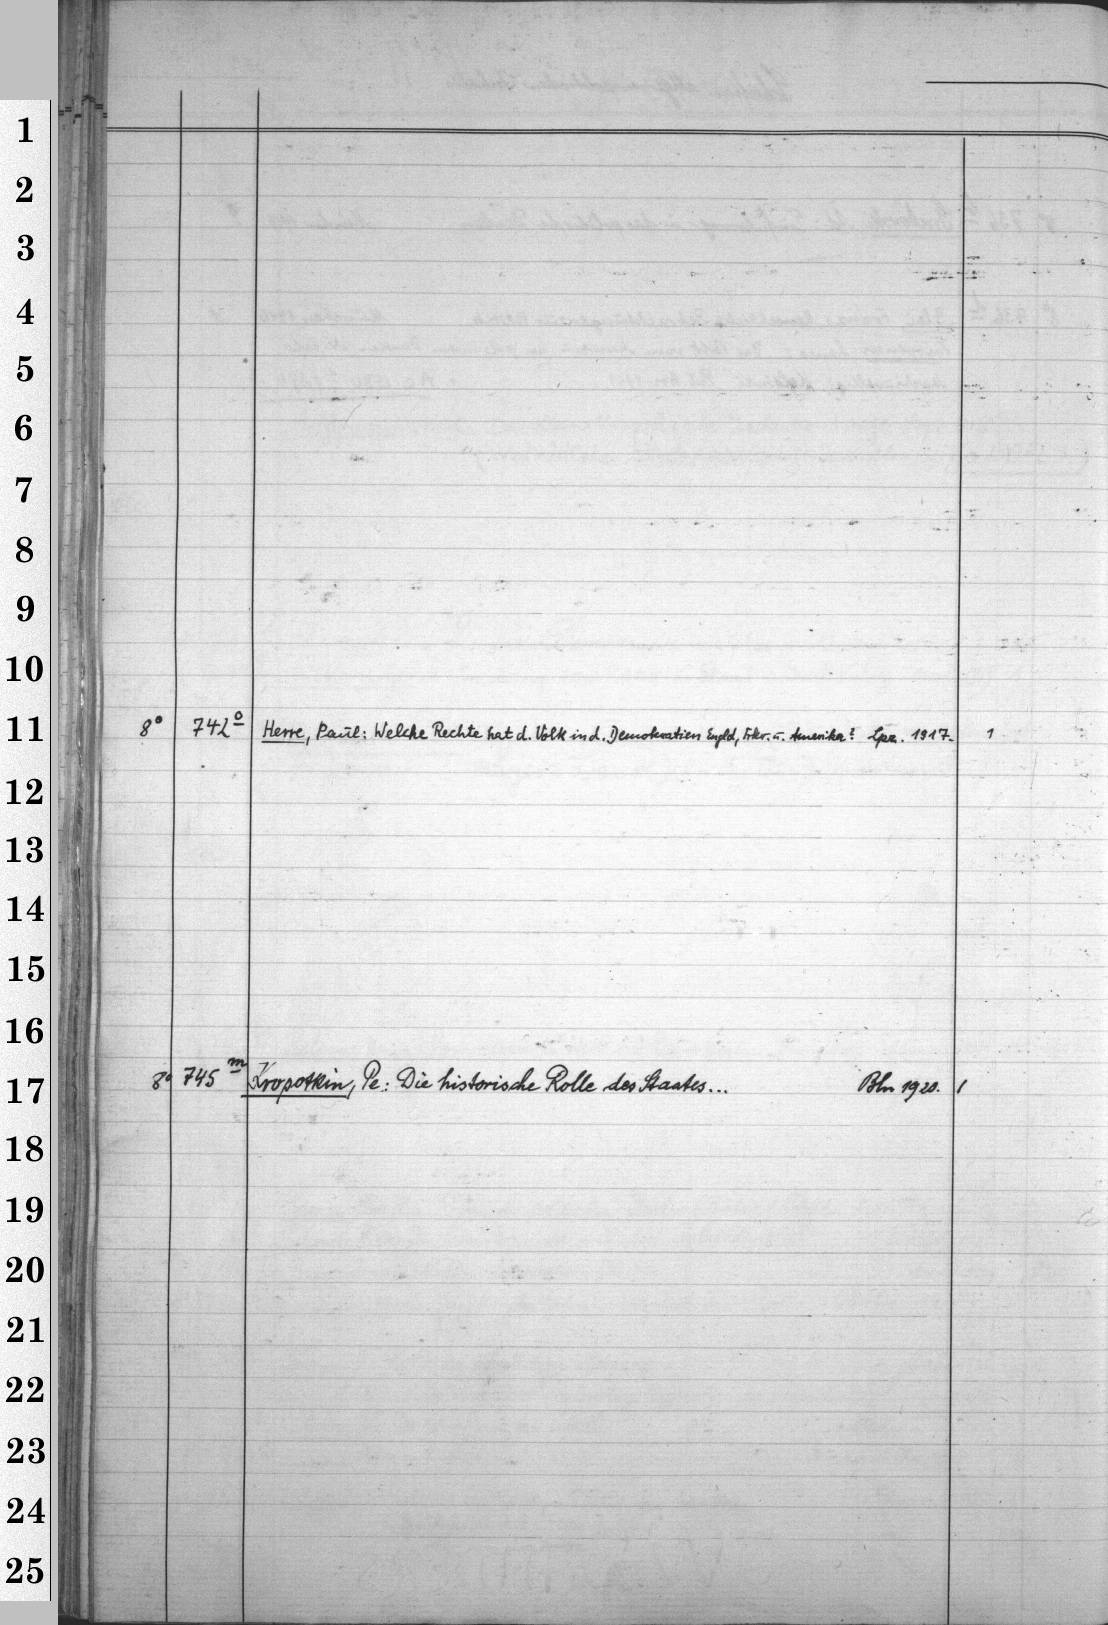 1
2
3
4
5
6
7
8
9
10
11
8° 742º Herre, Paul: Welche Rechte hat d. Volk in d. Demokratien Engld, Fkr. u. Amerika? Lpz. 1917. 1
12
13
14
15
16
17
8° 745ᵐ Kropotkin, Pe: Die historische Rolle des Staates... Bln 1920. 1
18
19
20
21
22
23
24
25